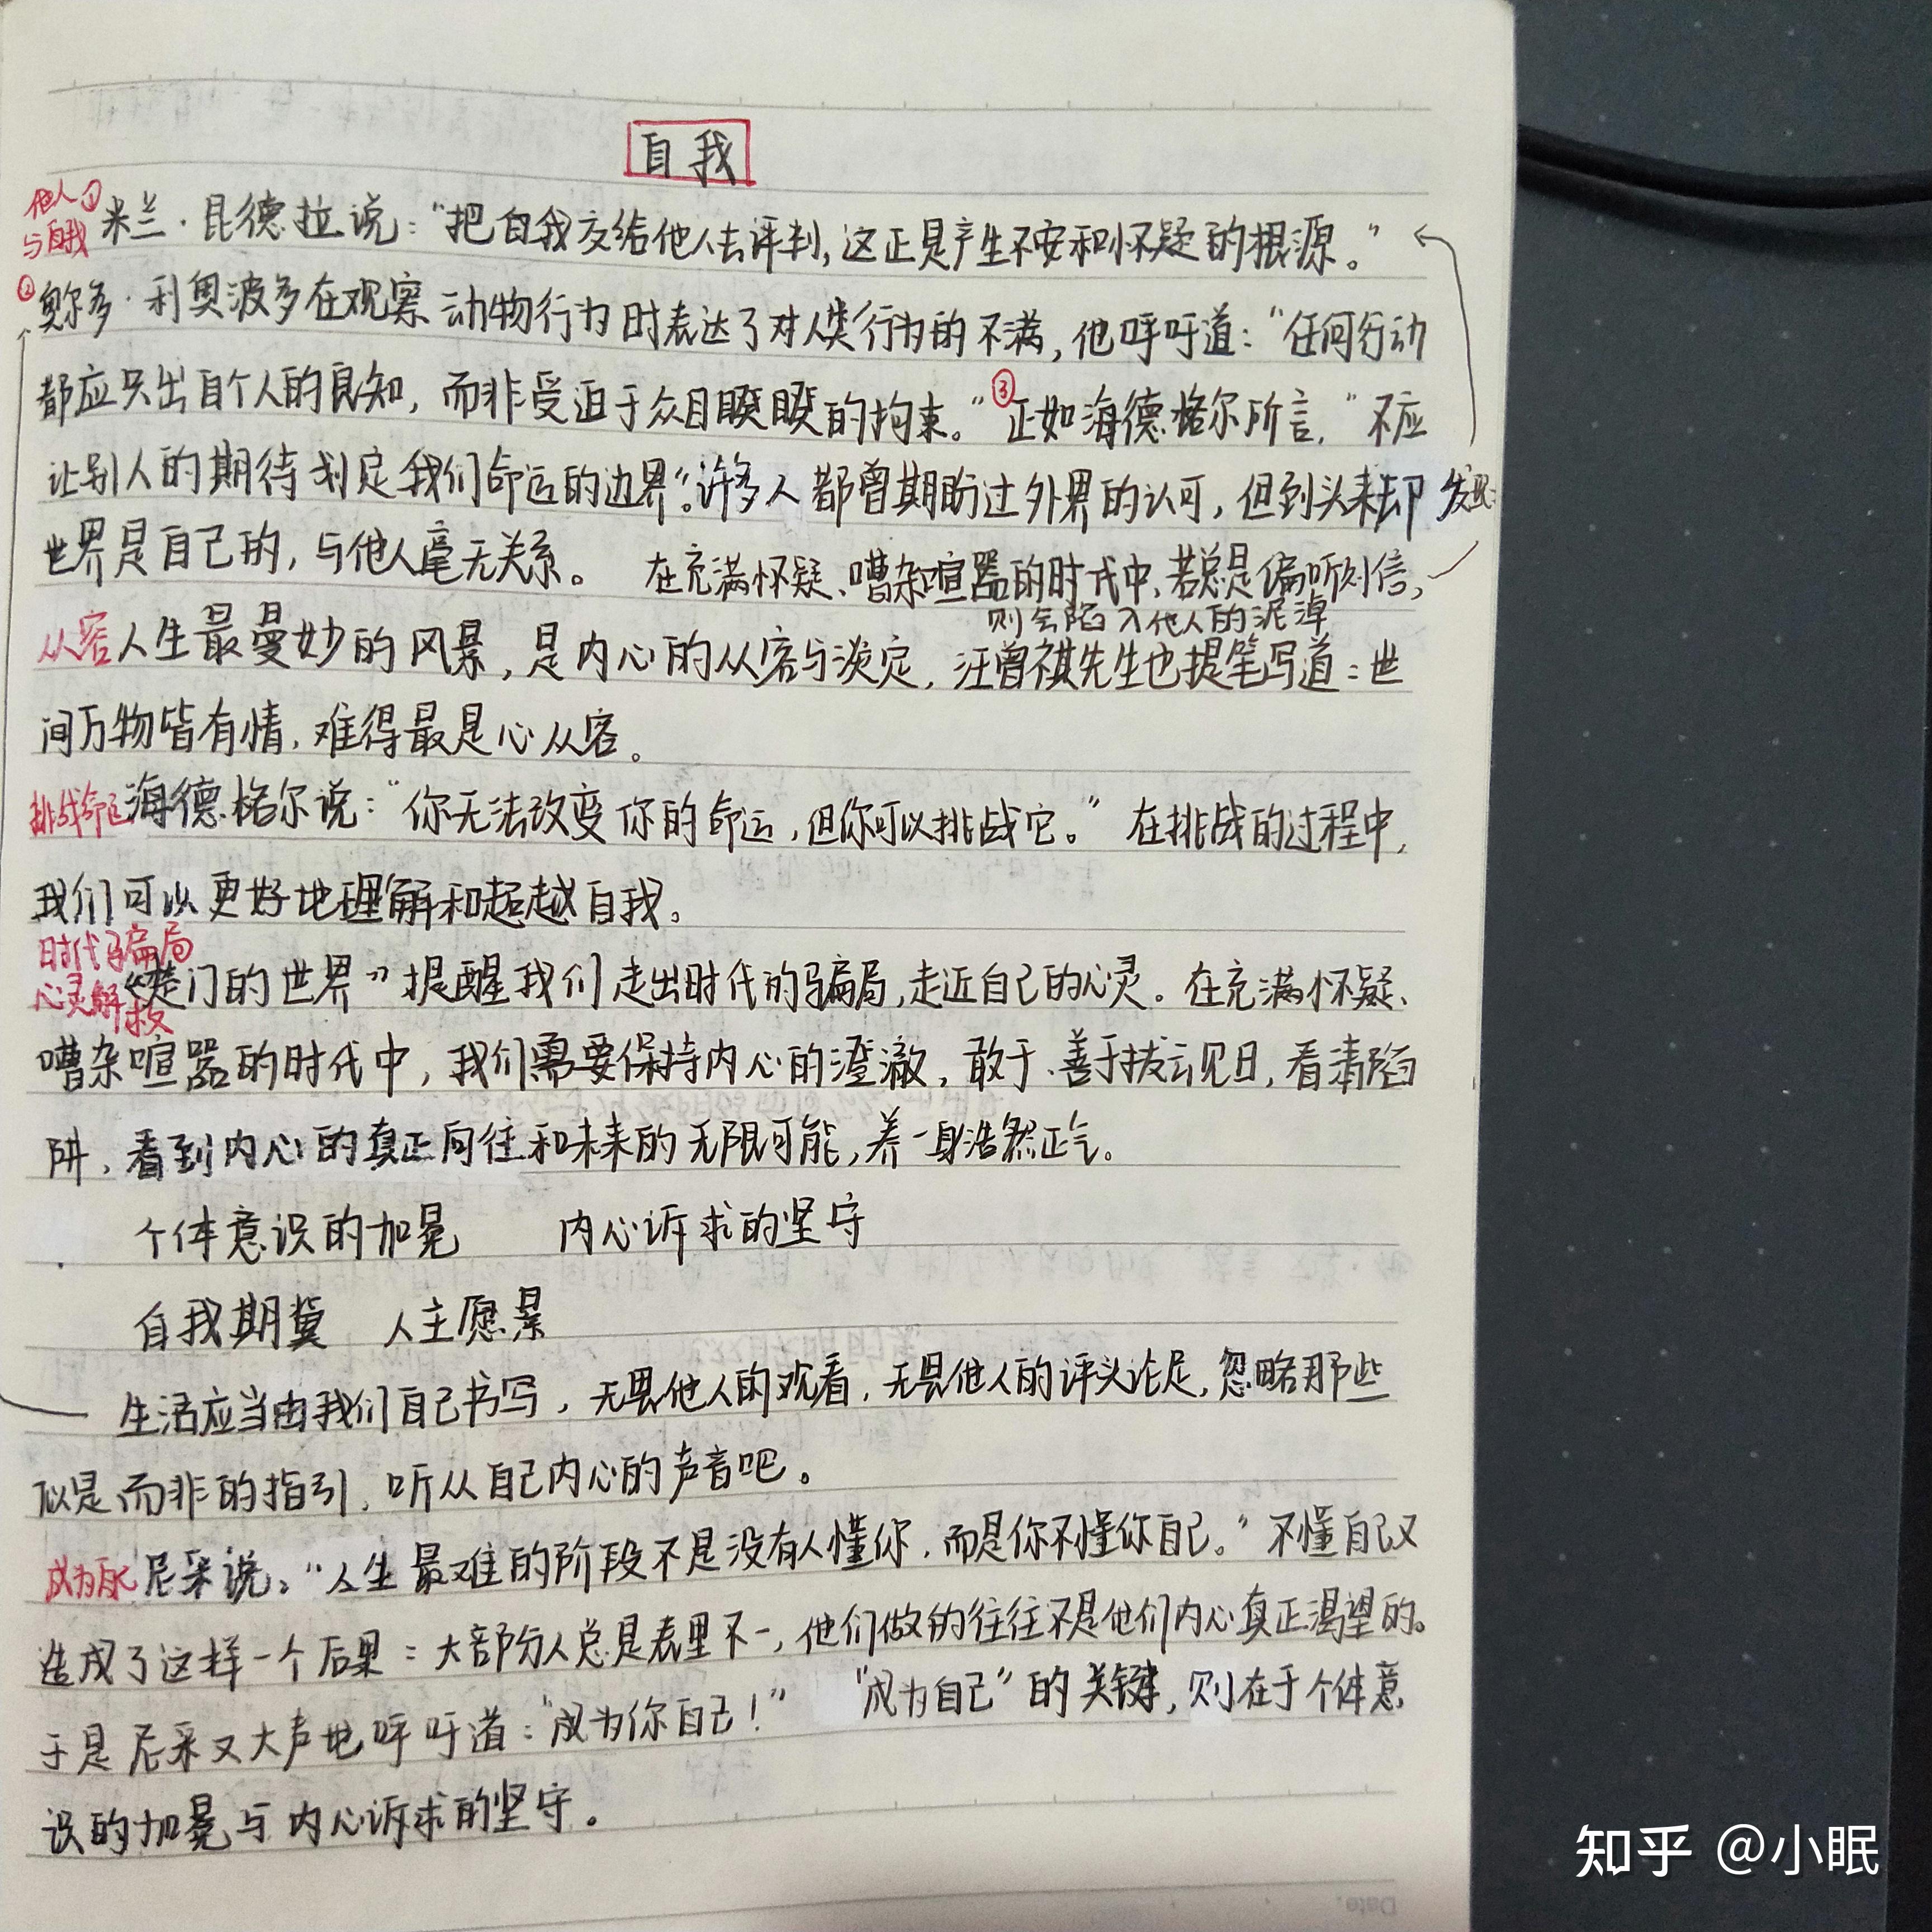 自我
他人①
与自我
米兰·昆德拉说：“把自我交给他人去评判，这正是产生不安和怀疑的根源。”
②奥尔多·利奥波多在观察动物行为时表达了对人类行为的不满，他呼吁道：“任何行动
都应只出自个人的良知，而非受迫于众目睽睽的拘束。”③正如海德格尔所言，“不应
让别人的期待划定我们命运的边界”。许多人都曾期盼过外界的认可，但到头来却发现：
世界是自己的，与他人毫无关系。 在充满怀疑、嘈杂喧嚣的时代中，若总是偏听则信，
则会陷入他人的泥淖
从容 人生最曼妙的风景，是内心的从容与淡定，汪曾祺先生也提笔写道：世
间万物皆有情，难得最是心从容。
挑战命运 海德格尔说：“你无法改变你的命运，但你可以挑战它。”在挑战的过程中，
我们可以更好地理解和超越自我。
时代骗局
心灵解放
《楚门的世界》提醒我们走出时代的骗局，走近自己的心灵。在充满怀疑、
嘈杂喧嚣的时代中，我们需要保持内心的澄澈，敢于、善于拔云见日，看清陷
阱，看到内心的真正向往和未来的无限可能，养一身浩然正气。
个体意识的加冕 内心诉求的坚守
自我期冀 人主愿景
生活应当由我们自己书写，无畏他人的观看，无畏他人的评头论足，忽略那些
似是而非的指引，听从自己内心的声音吧。
成为自己 尼采说：“人生最难的阶段不是没有人懂你，而是你不懂你自己。”不懂自己又
造成了这样一个后果：大部分人总是表里不一，他们做的往往不是他们内心真正渴望的。
于是尼采又大声地呼吁道：“成为你自己！” “成为自己”的关键，则在于个体意
识的加冕与内心诉求的坚守。
Date.
知乎 @小眠